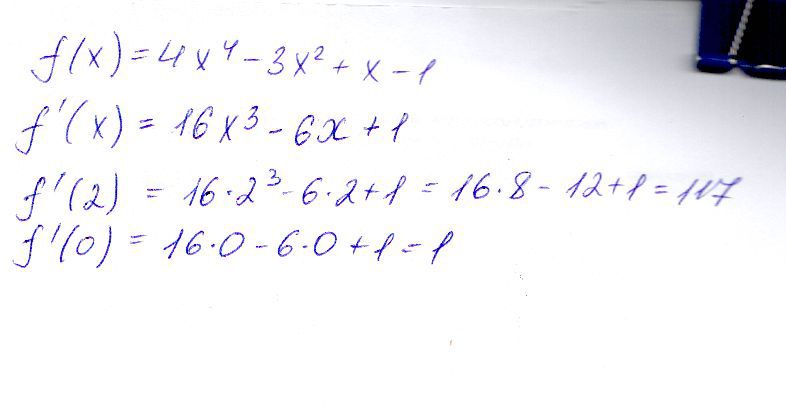 f(x) = 4x⁴ - 3x² + x - 1
f'(x) = 16x³ - 6x + 1
f'(2) = 16·2³ - 6·2 + 1 = 16·8 - 12 + 1 = 117
f'(0) = 16·0 - 6·0 + 1 = 1